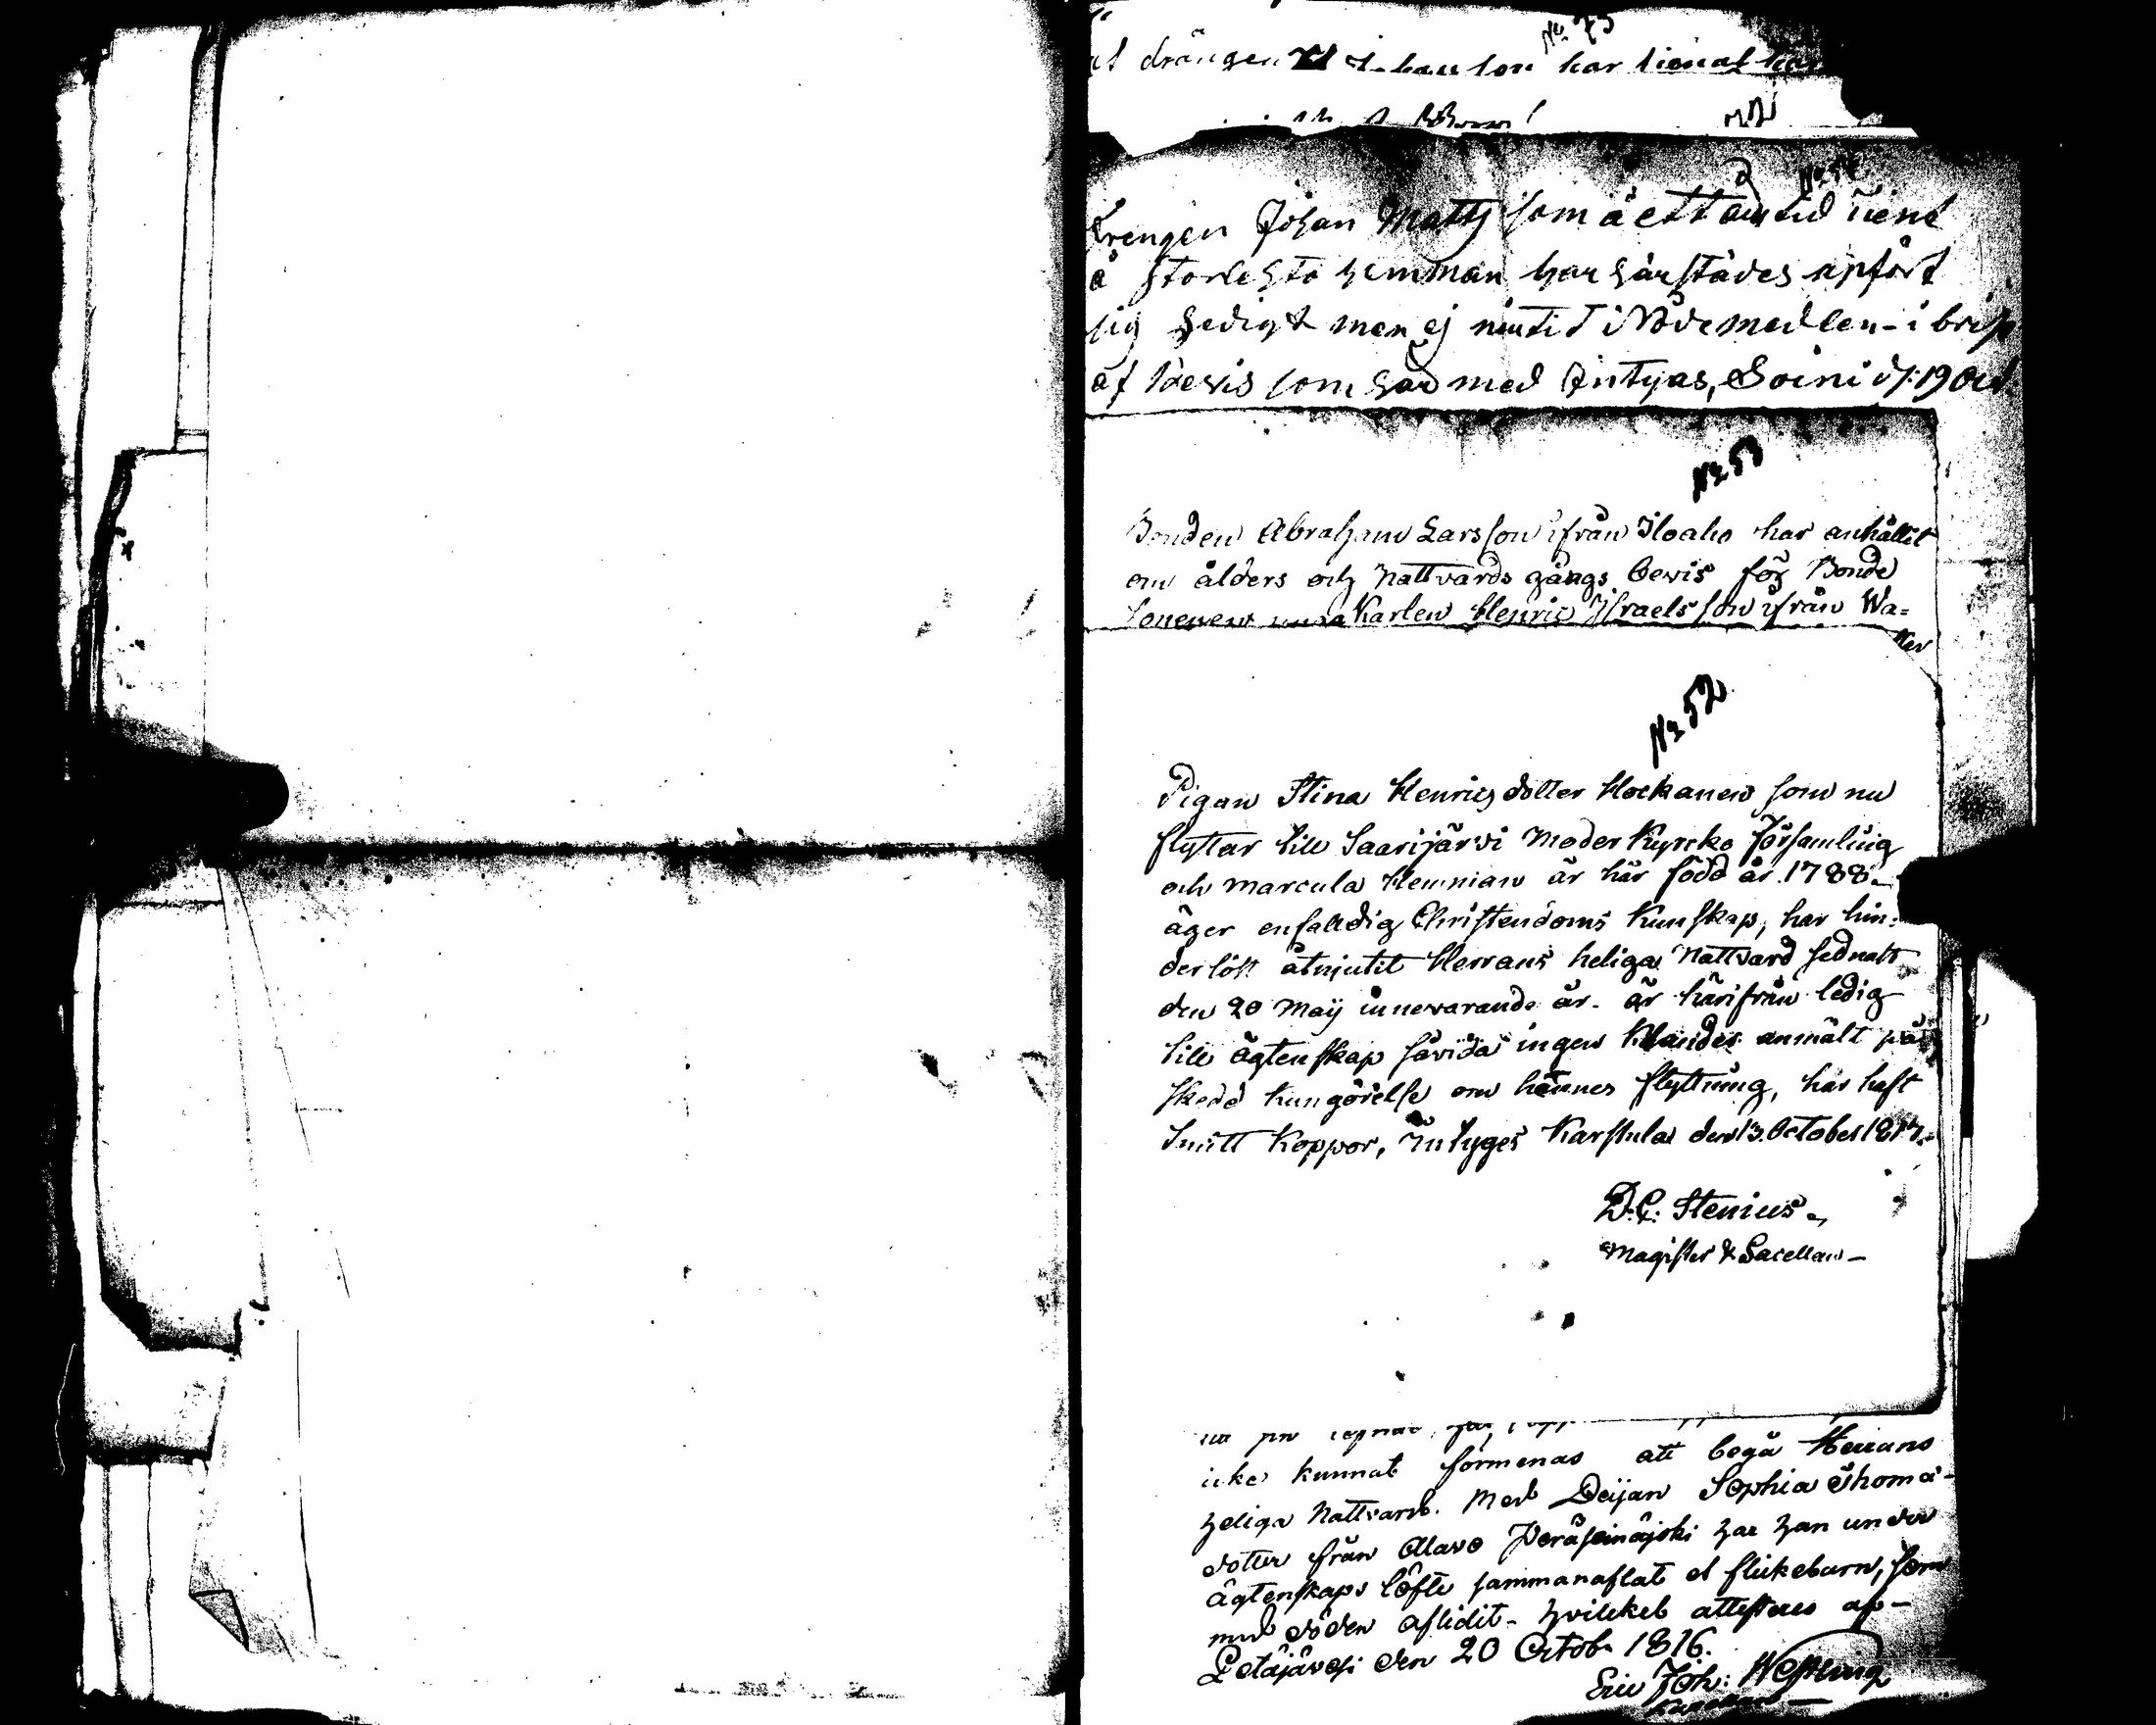 No 73
drängen Johansson har tienat
No 54
Drengen Johan Matts som å ett åurs tid tiené
å Storlehto hemman har härstädes upfört
sig hedigt men ej niutit i Nödemedlen i brist
af bevis som har med Intyas, Soini d/: 19 Oct
No 53
Bonden Abraham Larsson ifrån Iloaho har anhållit
om ålders och Nattvards gångs bevis för Bonde
Sonenem unga Karlen Henric Israelsson ifrån Wa=
No 52
Pigan Stina Henricsdotter Hockanen som nu
flyttar till Saarijärvi Moder Kyrcko Församling
och Marcula Hemman är här född år 1788 –
äger enfalldig Christendoms Kunskap, har hin-
derlöst åtnjutit Herrans heliga Nattvard sednast
den 20 Maij innevarande år. är härifrån ledig
till ägtenskap såvida ingen Klander anmält på
skedd kungörelse om hännes flyttning, har haft
Smått Koppor, Intyges Karstula den 13. October 1817.
D.C. Stenius –
Magister & Sacellan –
icke kunnat förmenas att begå Herrans
heliga Nattvard. Med Deijan Sophia Thomæ-
dotter från Alavo Peräseinäjoki har han under
ägtenskaps löfte sammanaflat et flickebarn, som
med döden aflidit – hvilcket attesteras af –
Petäjävesi den 20 Octobr 1816.
Eric Joh: Wessling